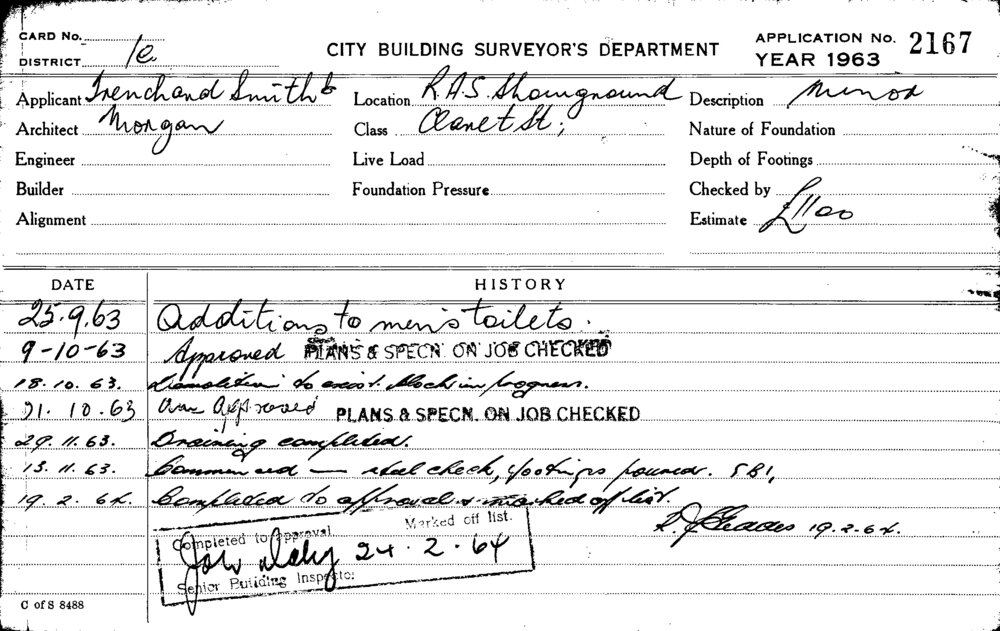 CARD No.
DISTRICT 1e
CITY BUILDING SURVEYOR'S DEPARTMENT
APPLICATION No. 2167
YEAR 1963
Applicant Trenchard Smith &
Architect Morgan
Engineer
Builder
Alignment
Location R.A.S. Showground
Class Clanet St;
Live Load
Foundation Pressure
Description Minor
Nature of Foundation
Depth of Footings
Checked by
Estimate £1100
DATE HISTORY
25.9.63 Additions to men's toilets.
9-10-63 Approved PLANS & SPECN. ON JOB CHECKED
18.10.63. Demolition to exist. block in progress.
31.10.63 Approved PLANS & SPECN. ON JOB CHECKED
29.11.63. Draining completed.
13.11.63. Commenced — steel check, footings poured. SB1,
19.2.64. Completed to approval & marked off list.
19.2.64.
Completed to approval. Marked off list.
24.2.64
Senior Building Inspector
C of S 8488